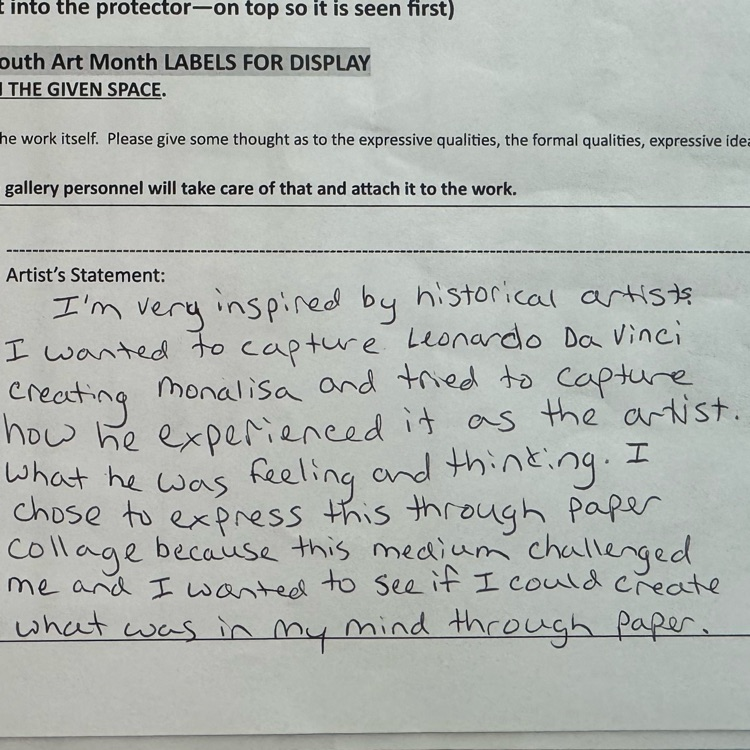 t into the protector—on top so it is seen first)
outh Art Month LABELS FOR DISPLAY
THE GIVEN SPACE.
he work itself. Please give some thought as to the expressive qualities, the formal qualities, expressive idea
gallery personnel will take care of that and attach it to the work.
Artist's Statement:
I'm very inspired by historical artists.
I wanted to capture Leonardo Da Vinci
creating monalisa and tried to capture
how he experienced it as the artist.
What he was feeling and thinking. I
chose to express this through paper
collage because this medium challenged
me and I wanted to see if I could create
what was in my mind through paper.